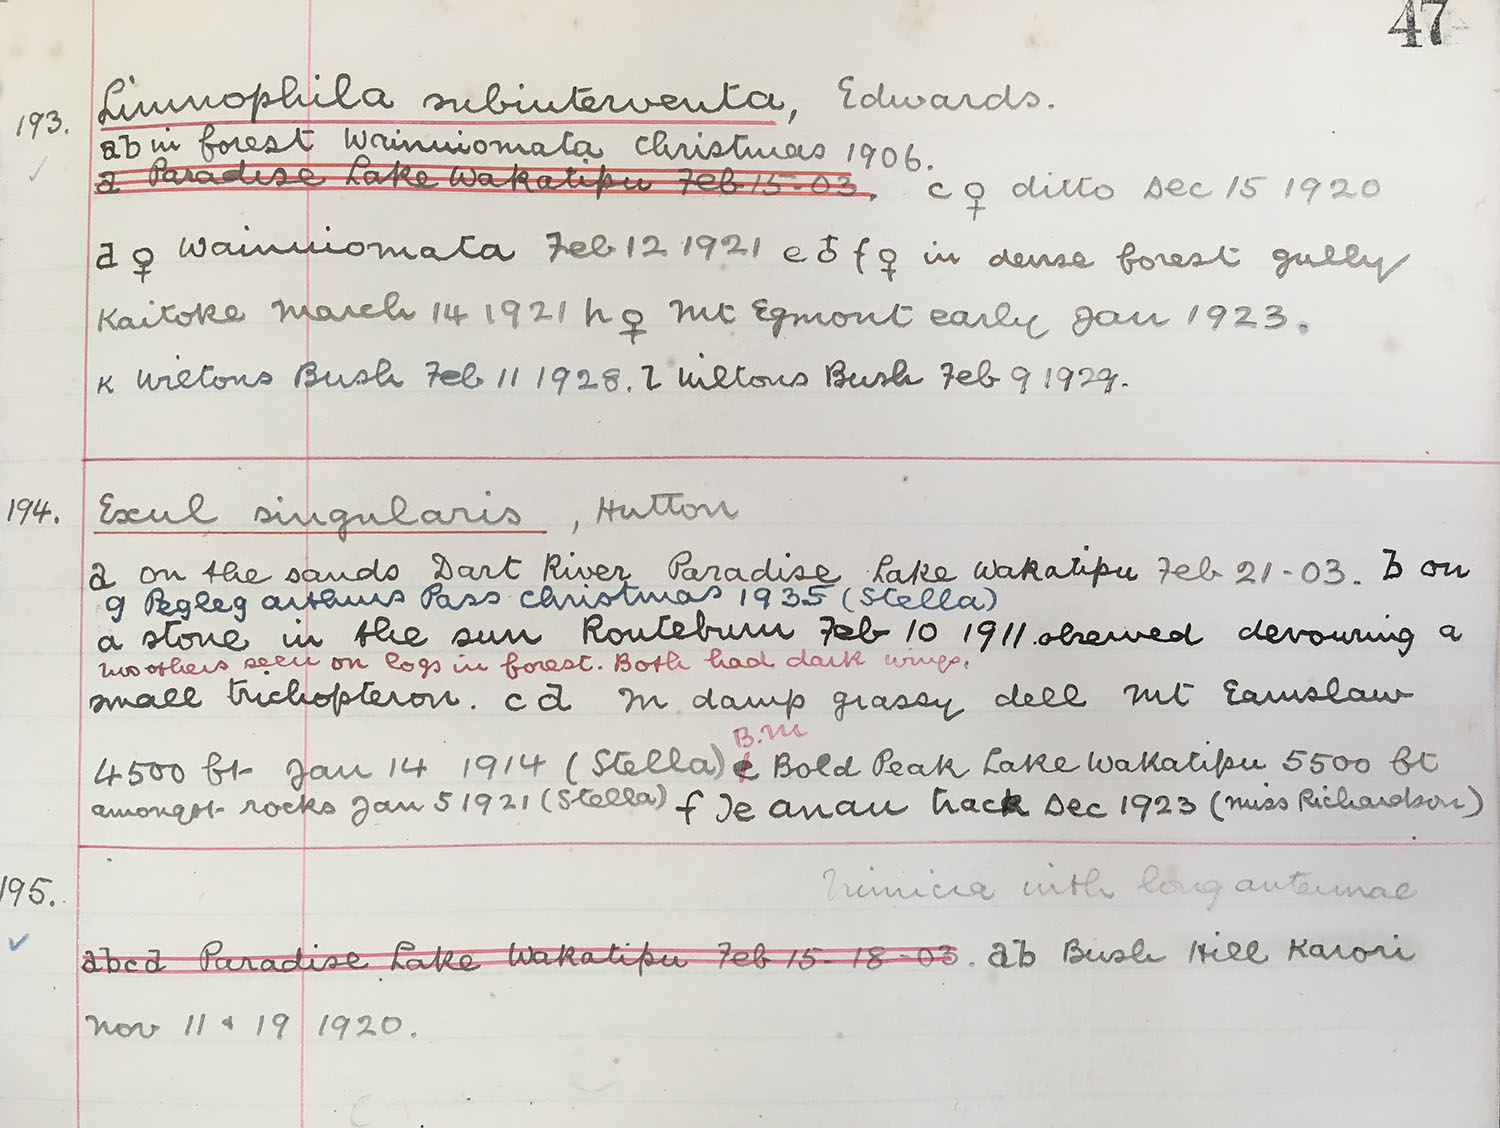 47
193. Limnophila subinterventa, Edwards.
ab in forest Wainuiomata Christmas 1906.
a Paradise Lake Wakatipu Feb 15-03. c ♀ ditto Dec 15 1920
d ♀ Wainuiomata Feb 12 1921 e ♂ f ♀ in dense forest gully
Kaitoke March 14 1921 h ♀ Mt Egmont early Jan 1923.
K Wiltons Bush Feb 11 1928. l Wiltons Bush Feb 9 1929.
194. Exul singularis, Hutton
a on the sands Dart River Paradise Lake Wakatipu Feb 21-03. b on
g Pegleg Arthurs Pass Christmas 1935 (Stella)
a stone in the sun Routeburn Feb 10 1911. observed devouring a
two others seen on logs in forest. Both had dark wings.
small trichopteron. c d In damp grassy dell Mt Earnslaw
B.M
4500 ft Jan 14 1914 (Stella) e Bold Peak Lake Wakatipu 5500 ft
amongst rocks Jan 5 1921 (Stella) f Te anau track Dec 1923 (Miss Richardson)
195. with long antennae
abcd Paradise Lake Wakatipu Feb 15-18-03. ab Bush Hill Karori
Nov 11 & 19 1920.